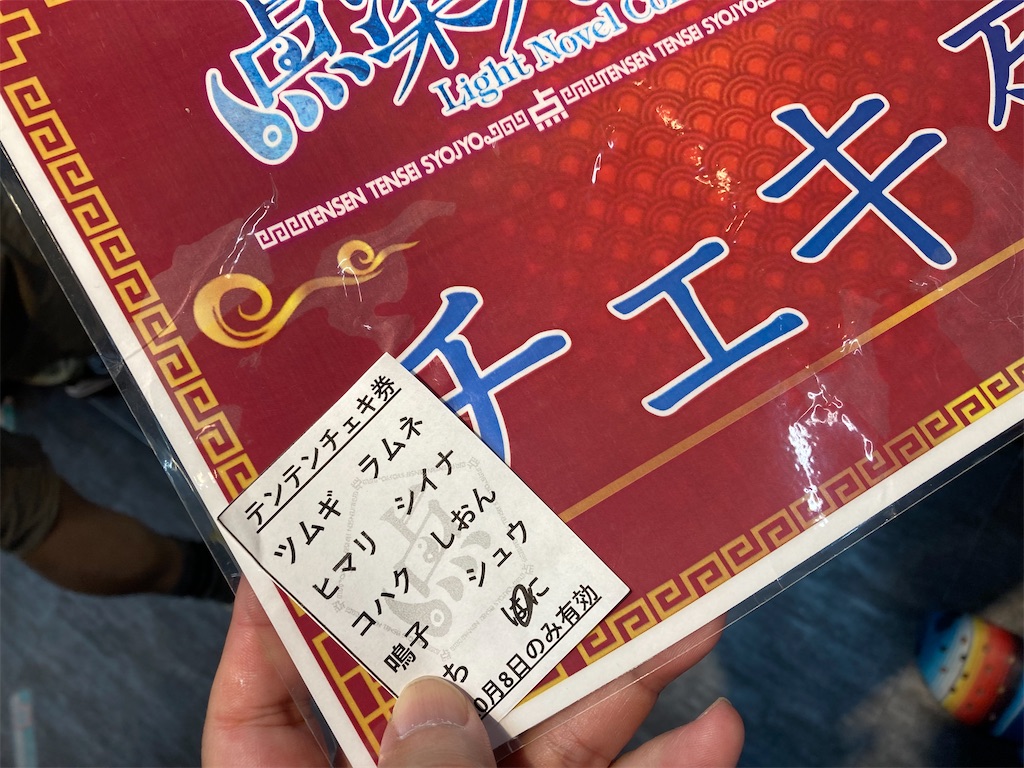 点染天
Light Novel Co
TENSEN TENSEI SYOJYO 点 TENSEN TENSEI SYOJYO
チェキ
テンテンチェキ券
ツムギ ラムネ
ヒマリ シイナ
コハク しおん
鳴子 シュウ
ち に
0月8日のみ有効
点